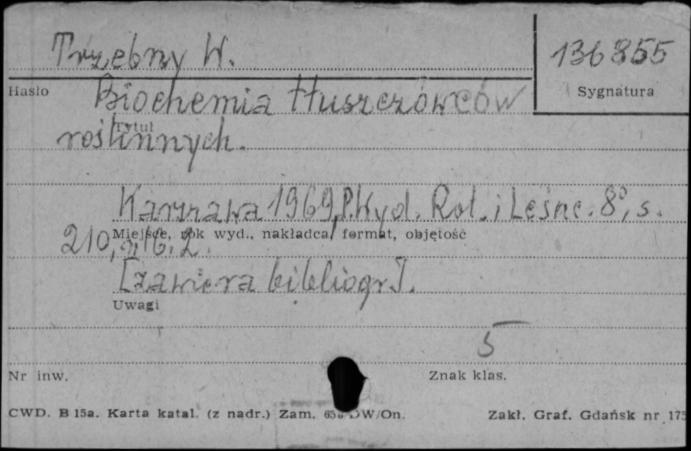 Trzebny W.
136855
Hasło
Sygnatura
Biochemia tłuszczowców
Tytuł
roślinnych.
Warszawa 1969, P. Wyd. Rol. i Leśne. 8°, s.
Miejsce, rok wyd., nakładca, format, objętość
210,
[zawiera bibliogr].
Uwagi
5
Nr inw.
Znak klas.
CWD. B 15a. Karta katal. (z nadr.) Zam. W/On.
Zakł. Graf. Gdańsk nr 175